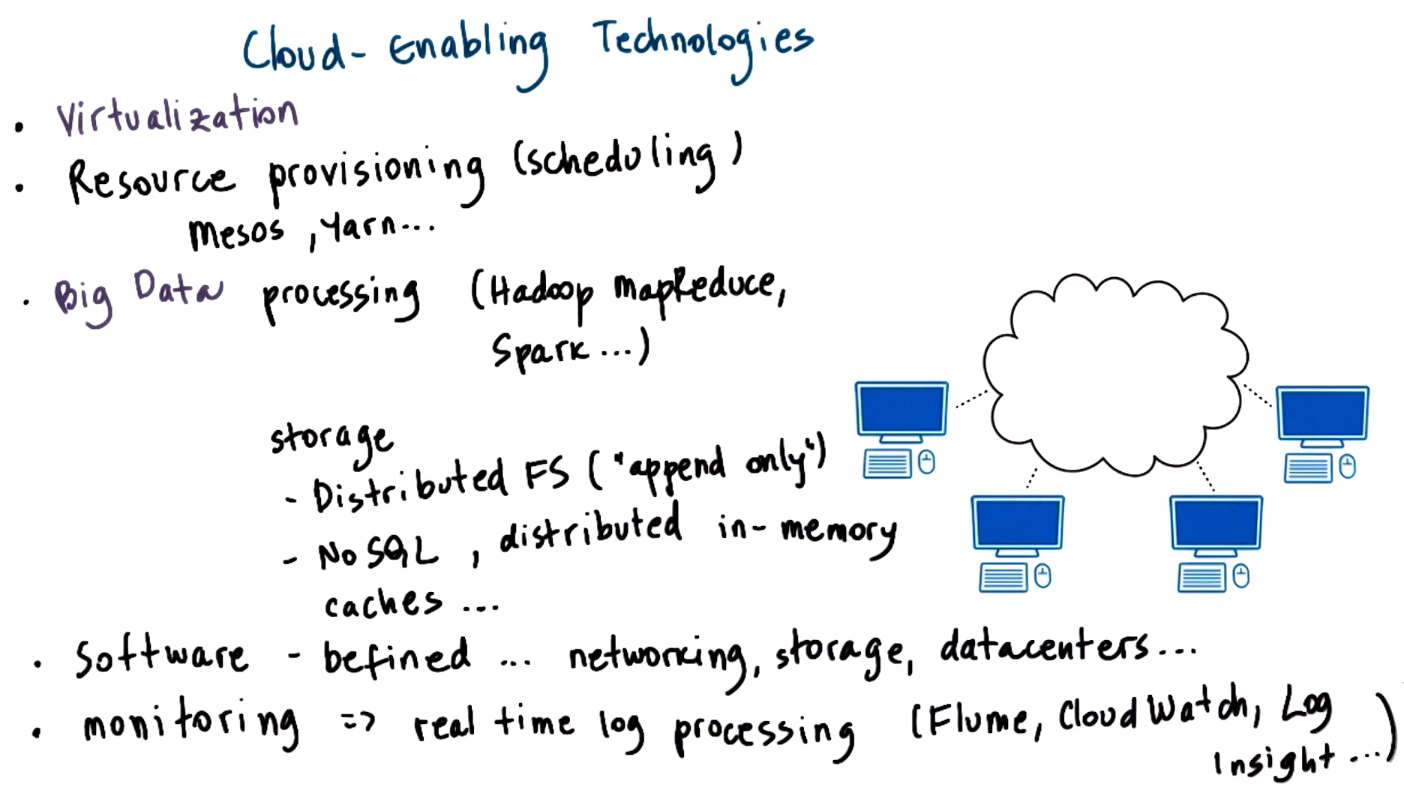 Cloud-Enabling Technologies
• Virtualization
• Resource provisioning (scheduling)
Mesos, Yarn...
• Big Data processing (Hadoop MapReduce,
Spark ...)
storage
- Distributed FS ("append only")
- NoSQL, distributed in-memory
caches ...
• Software - befined ... networking, storage, datacenters...
• monitoring => real time log processing (Flume, CloudWatch, Log
Insight ...)